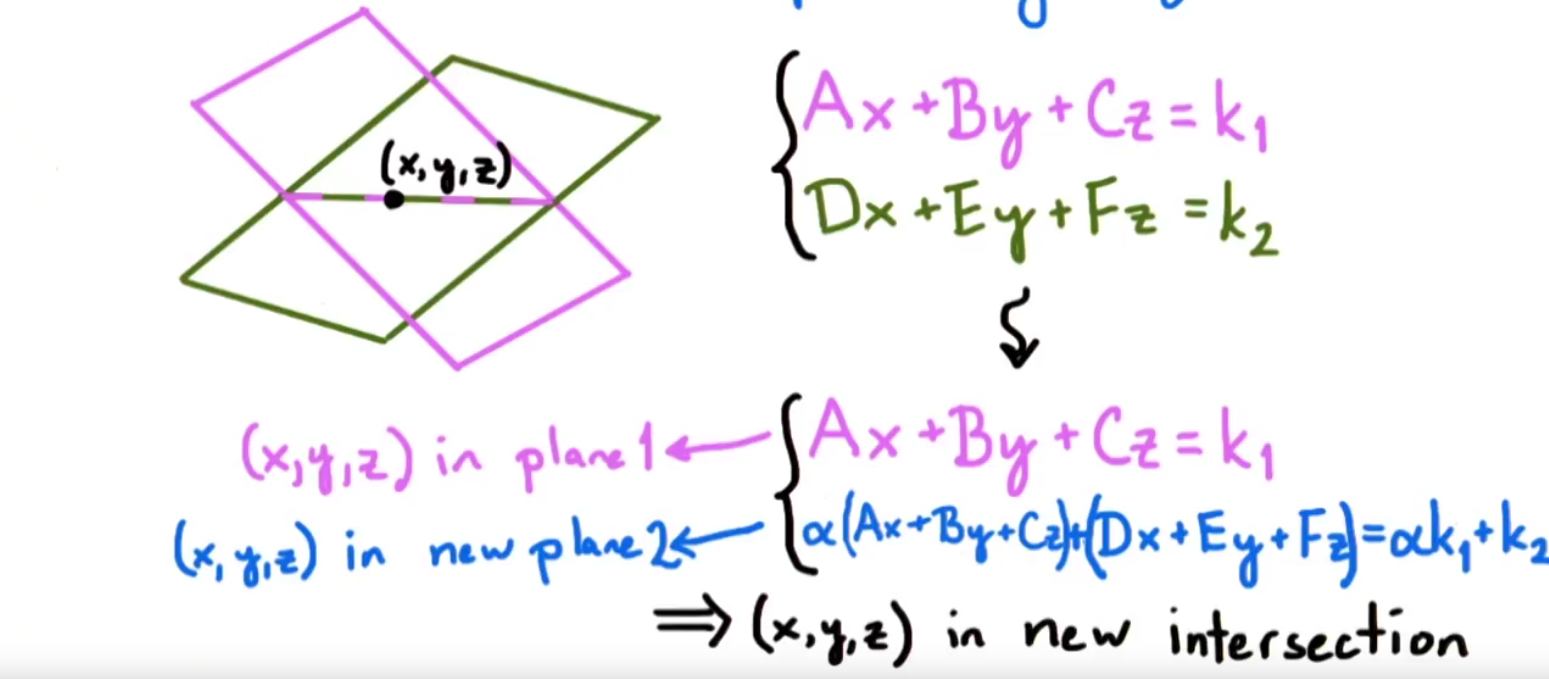 (x,y,z)
Ax+By+Cz=k₁
Dx+Ey+Fz=k₂
(x,y,z) in plane 1 ← Ax+By+Cz=k₁
(x,y,z) in new plane 2 ← α(Ax+By+Cz)+(Dx+Ey+Fz)=αk₁+k₂
⇒ (x,y,z) in new intersection